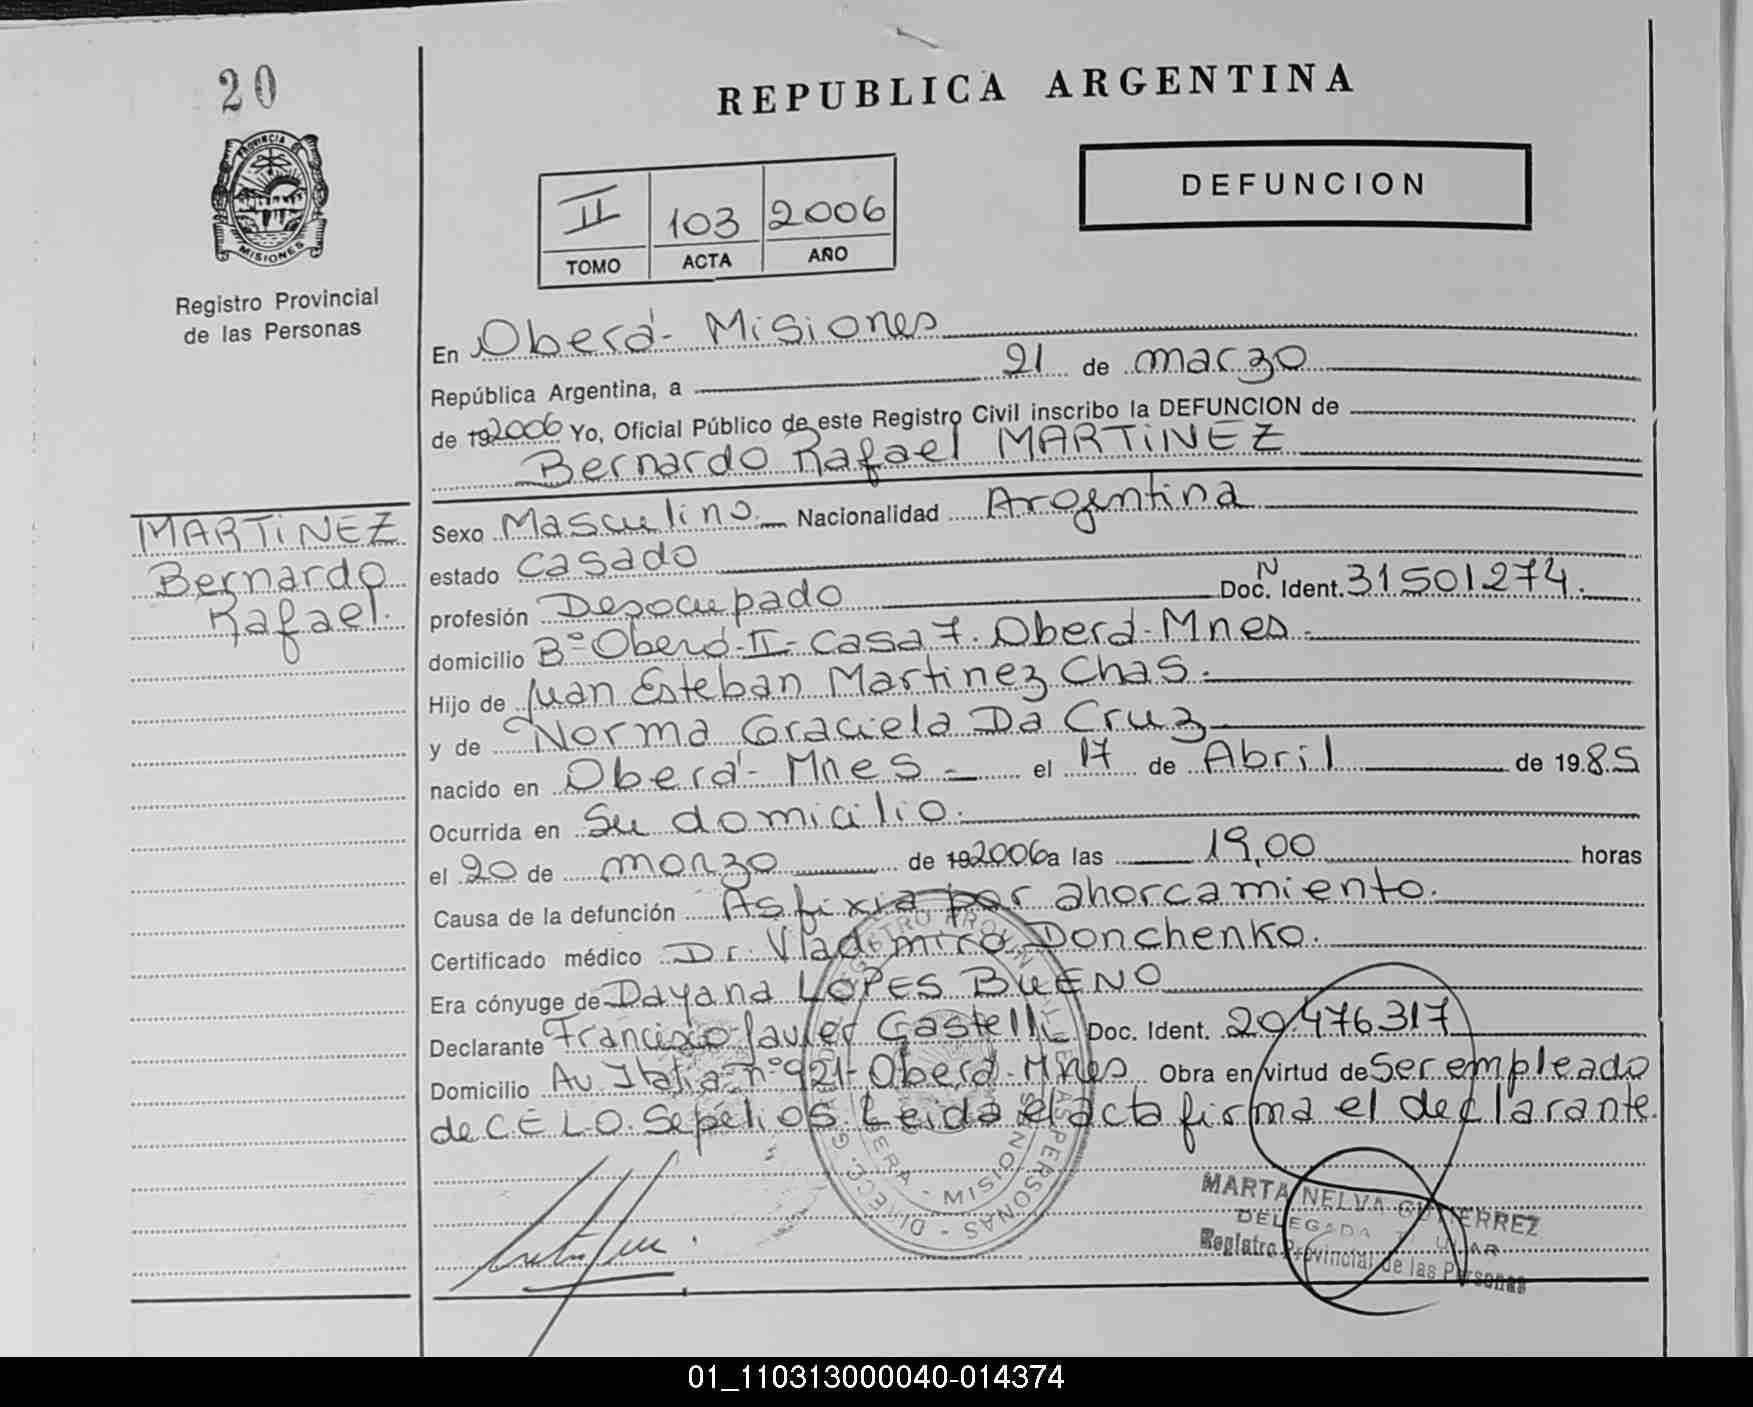 20
REPUBLICA ARGENTINA
PROVINCIA DE
MISIONES
DEFUNCION
II 103 2006
TOMO ACTA AÑO
Registro Provincial
de las Personas
En Oberá - Misiones
República Argentina, a 21 de marzo
de 192006 Yo, Oficial Público de este Registro Civil inscribo la DEFUNCION de
Bernardo Rafael MARTiNEZ
MARTiNEZ
Bernardo
Rafael.
Sexo Masculino. Nacionalidad Argentina
estado casado
profesión Desocupado Doc. N Ident. 31501274.
domicilio Bº Oberá II - Casa 7. Oberá - Mnes -
Hijo de Juan Esteban Martinez Chas.
y de Norma Graciela Da Cruz
nacido en Oberá - Mnes - el 17 de Abril de 1985
Ocurrida en Su domicilio.
el 20 de marzo de 192006 a las 19,00 horas
Causa de la defunción Asfixia por ahorcamiento.
Certificado médico Dr. Vladimiro Donchenko.
Era cónyuge de Dayana LOPES BUENO
Declarante Francisco Javier Gastelli Doc. Ident. 20.476.317
Domicilio Av. Italia nº 921 - Oberá - Mnes Obra en virtud de Ser empleado
de C.E.L.O. Sepelios. Leida el acta firma el declarante.
MARTA NELVA GUTIERREZ
DELEGADA
Registro Provincial de las Personas
01_110313000040-014374